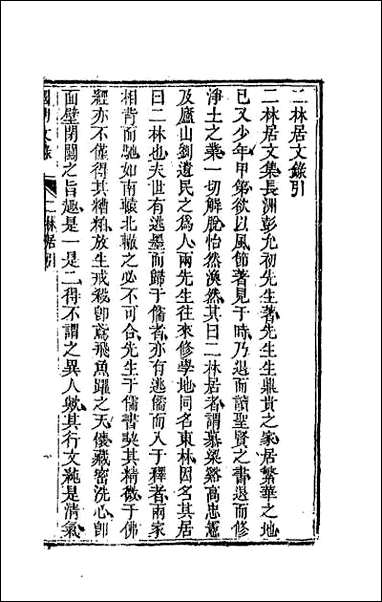 二林居文錄引
二林居文集長洲彭允初先生著先生生鼎貴之家居繁華之地
已又少年甲第欲以風節著見于時乃退而讀聖賢之書退而修
淨土之業一切解脫怡然渙然其曰二林居者謂慕梁谿高忠憲
及廬山劉遺民之為人兩先生往來修學地同名東林因名其居
曰二林也夫世有逃墨而歸于儒者亦有逃儒而入于釋者兩家
相背而馳如南轅北轍之必不可合先生于儒書契其精微于佛
經亦不僅得其糟粕放生戒殺卽鳶飛魚躍之天倭藏密洗心卽
面壁閉關之旨趣是一是二得不謂之異人歟其行文純是清氣
國朝文錄 二林居引